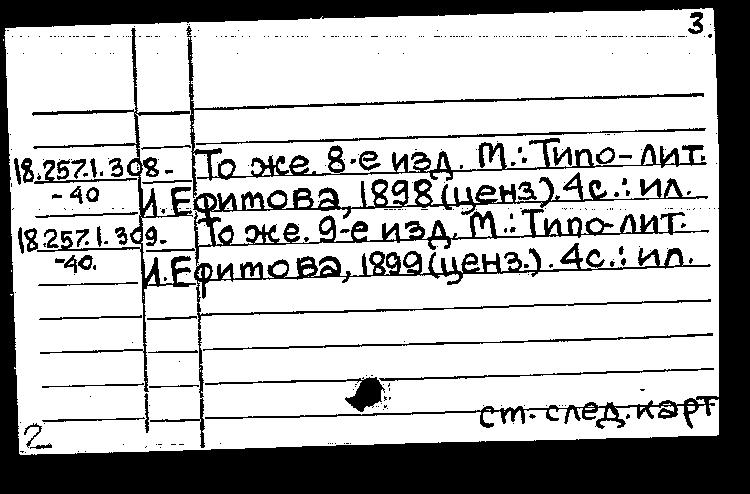 3.
18.257.1.308- То же. 8-е изд. М.: Типо-лит.
-40 И. Ефитова, 1898 (ценз). 4с.: ил.
18.257.1.309- То же. 9-е изд. М.: Типо-лит.
-40. И. Ефитова, 1899 (ценз.). 4с.: ил.
см. след. карт
2